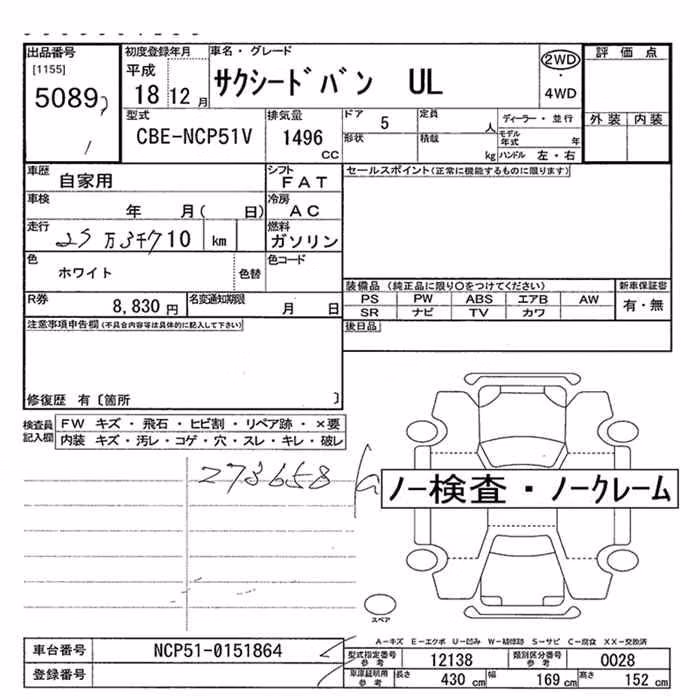 出品番号 初度登録年月 車名・グレード 2WD 評価点
[1155] 平成 サクシードバン UL ・
5089 18 12 月 4WD
型式 排気量 ドア 5 定員 人 ディーラー・並行 外装 内装
CBE-NCP51V 1496 CC 形状 積載 kg モデル年式 年
ハンドル 左・右
車歴 自家用 シフト FAT セールスポイント(正常に機能するものに限ります)
車検 年 月( 日) 冷房 AC
走行 25万3千710 km 燃料 ガソリン
色 ホワイト 色替 色コード
装備品 (純正品に限り〇をつけてください) 新車保証書
R券 8,830 円 名変通知期限 月 日 PS PW ABS エアB AW 有・無
SR ナビ TV カワ
注意事項申告欄(不具合内容等は具体的に記入して下さい) 後日品
修復歴 有〔箇所 〕
検査員記入欄 FW キズ・飛石・ヒビ割・リペア跡・×要
内装 キズ・汚レ・コゲ・穴・スレ・キレ・破レ
273658
ノー検査・ノークレーム
スペア
A-キズ E-エクボ U-凹み W-補修跡 S-サビ C-腐食 XX-交換済
車台番号 NCP51-0151864 型式指定番号 参考 12138 類別区分番号 参考 0028
登録番号 車庫証明用 参考 長さ 430 cm 幅 169 cm 高さ 152 cm